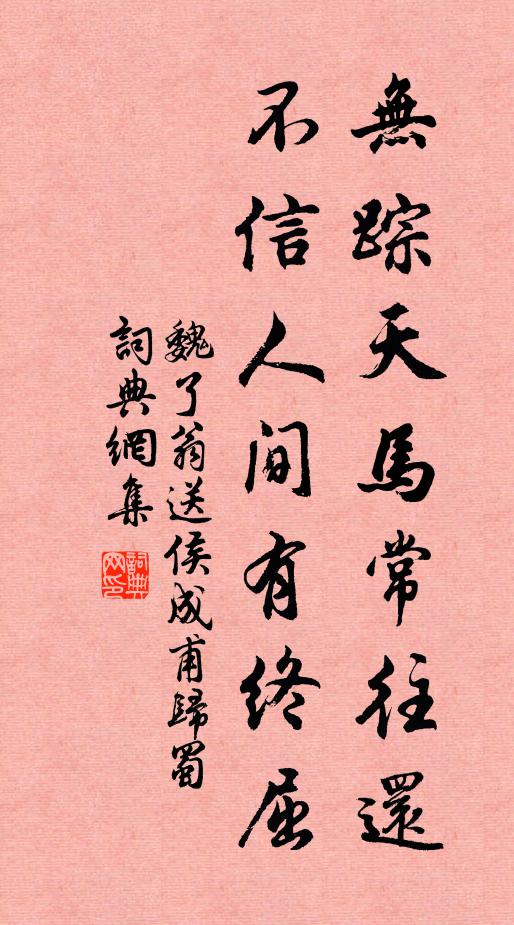 無踪天馬常往還
不信人間有終屈
魏了翁送侯成甫歸蜀
詞典網集
詞典網印